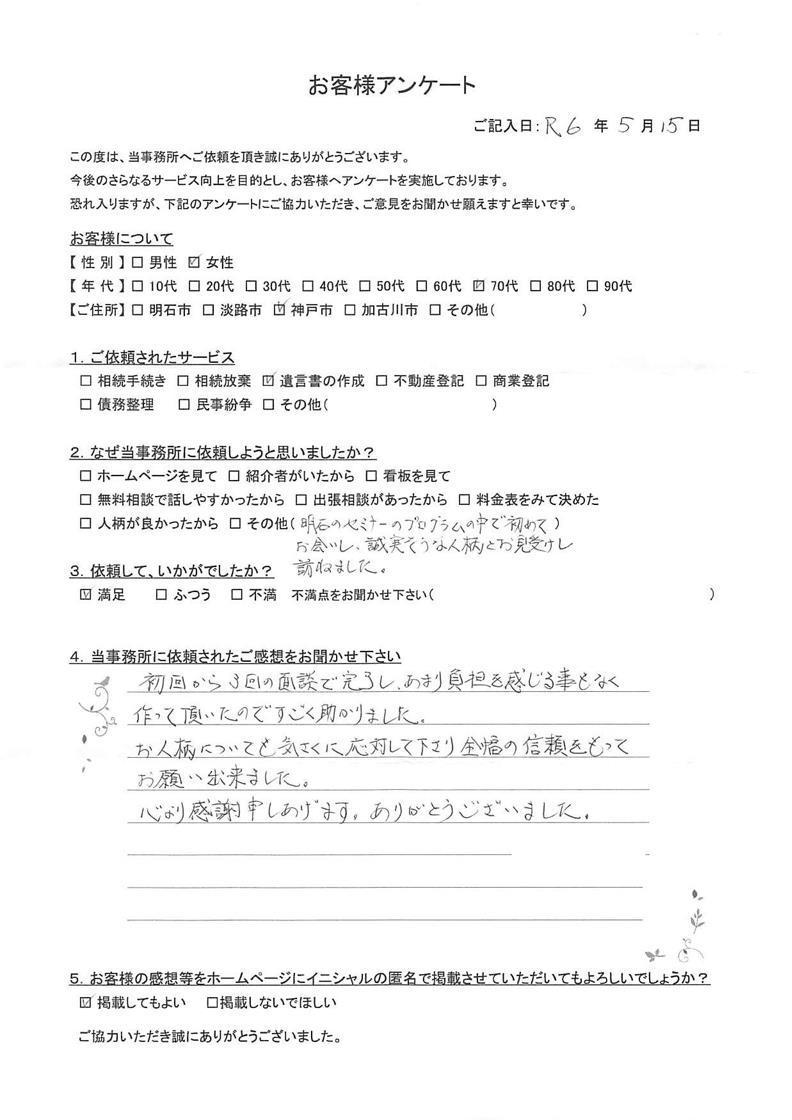 お客様アンケート
ご記入日：R6 年 5 月 15 日
この度は、当事務所へご依頼を頂き誠にありがとうございます。
今後のさらなるサービス向上を目的とし、お客様へアンケートを実施しております。
恐れ入りますが、下記のアンケートにご協力いただき、ご意見をお聞かせ願えますと幸いです。
お客様について
【 性 別 】 □ 男性 ☑ 女性
【 年 代 】 □ 10代 □ 20代 □ 30代 □ 40代 □ 50代 □ 60代 ☑ 70代 □ 80代 □ 90代
【ご住所】 □ 明石市 □ 淡路市 ☑ 神戸市 □ 加古川市 □ その他（ ）
１．ご依頼されたサービス
□ 相続手続き □ 相続放棄 ☑ 遺言書の作成 □ 不動産登記 □ 商業登記
□ 債務整理 □ 民事紛争 □ その他（ ）
２．なぜ当事務所に依頼しようと思いましたか？
□ ホームページを見て □ 紹介者がいたから □ 看板を見て
□ 無料相談で話しやすかったから □ 出張相談があったから □ 料金表をみて決めた
□ 人柄が良かったから □ その他（ 明石のセミナーのプログラムの中で初めて ）
お会いし、誠実そうな人柄とお見受けし
訪ねました。
３．依頼して、いかがでしたか？
☑ 満足 □ ふつう □ 不満 不満点をお聞かせ下さい（ ）
４．当事務所に依頼されたご感想をお聞かせ下さい
初回から3回の面談で完了し、あまり負担を感じる事もなく
作って頂いたのですごく助かりました。
お人柄についても気さくに応対して下さり全幅の信頼をもって
お願い出来ました。
心より感謝申しあげます。ありがとうございました。
５．お客様の感想等をホームページにイニシャルの匿名で掲載させていただいてもよろしいでしょうか？
☑ 掲載してもよい □掲載しないでほしい
ご協力いただき誠にありがとうございました。